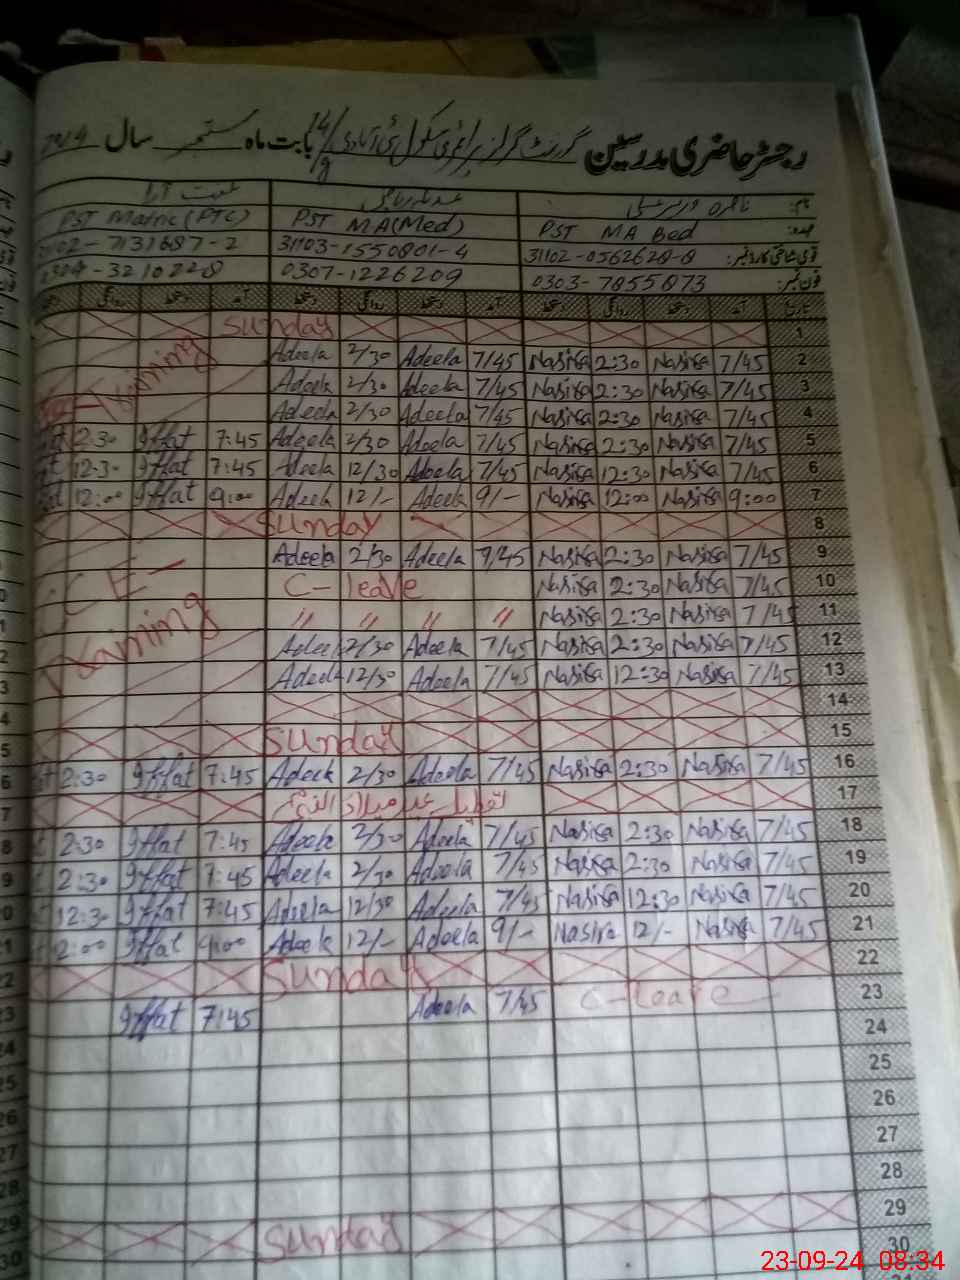 رجسٹر حاضری مدرسین گورنمنٹ گرلز پرائمری سکول نئی آبادی بابت ماہ ستمبر سال
نام:
عہدہ: PST MA Bed PST MA(Med) PST Matric(PTC)
قومی شناختی کارڈ نمبر: 31102-0562628-8 31103-1550801-4 31102-7131687-2
فون نمبر: 0303-7855073 0307-1226209
تاریخ آمد دستخط روانگی دستخط آمد دستخط روانگی دستخط آمد دستخط روانگی
1 Sunday
2 7/45 Nasira 2:30 Nasira 7/45 Adeela 2/30 Adeela
3 7/45 Nasira 2:30 Nasira 7/45 Adeela 2/30 Adeela
4 7/45 Nasira 2:30 Nasira 7/45 Adeela 2/30 Adeela Training
5 7/45 Nasira 2:30 Nasira 7/45 Adeela 2/30 Adeela 7:45 Iffat 2:30
6 7/45 Nasira 12:30 Nasira 7/45 Adeela 12/30 Adeela 7:45 Iffat 12:30
7 9:00 Nasira 12:00 Nasira 9/- Adeela 12/- Adeela 9:00 Iffat 12:00
8 Sunday
9 7/45 Nasira 2:30 Nasira 7/45 Adeela 2/30 Adeela
10 7/45 Nasira 2:30 Nasira C-leave
11 7/45 Nasira 2:30 Nasira " " " "
12 7/45 Nasira 2:30 Nasira 7/45 Adeela 2/30 Adeela
13 7/45 Nasira 12:30 Nasira 7/45 Adeela 12/30 Adeela Training
14
15 Sunday
16 7/45 Nasira 2:30 Nasira 7/45 Adeela 2/30 Adeela 7:45 Iffat 2:30
17 تعطیل عید میلاد النبیؐ
18 7/45 Nasira 2:30 Nasira 7/45 Adeela 2/30 Adeela 7:45 Iffat 2:30
19 7/45 Nasira 2:30 Nasira 7/45 Adeela 2/30 Adeela 7:45 Iffat 2:30
20 7/45 Nasira 12:30 Nasira 7/45 Adeela 12/30 Adeela 7:45 Iffat 12:30
21 7/45 Nasira 12/- Nasira 9/- Adeela 12/- Adeela 9:00 Iffat 2:00
22 Sunday
23 C-leave 7/45 Adeela 7:45 Iffat
24
25
26
27
28
29 Sunday
30
23-09-24 08:34